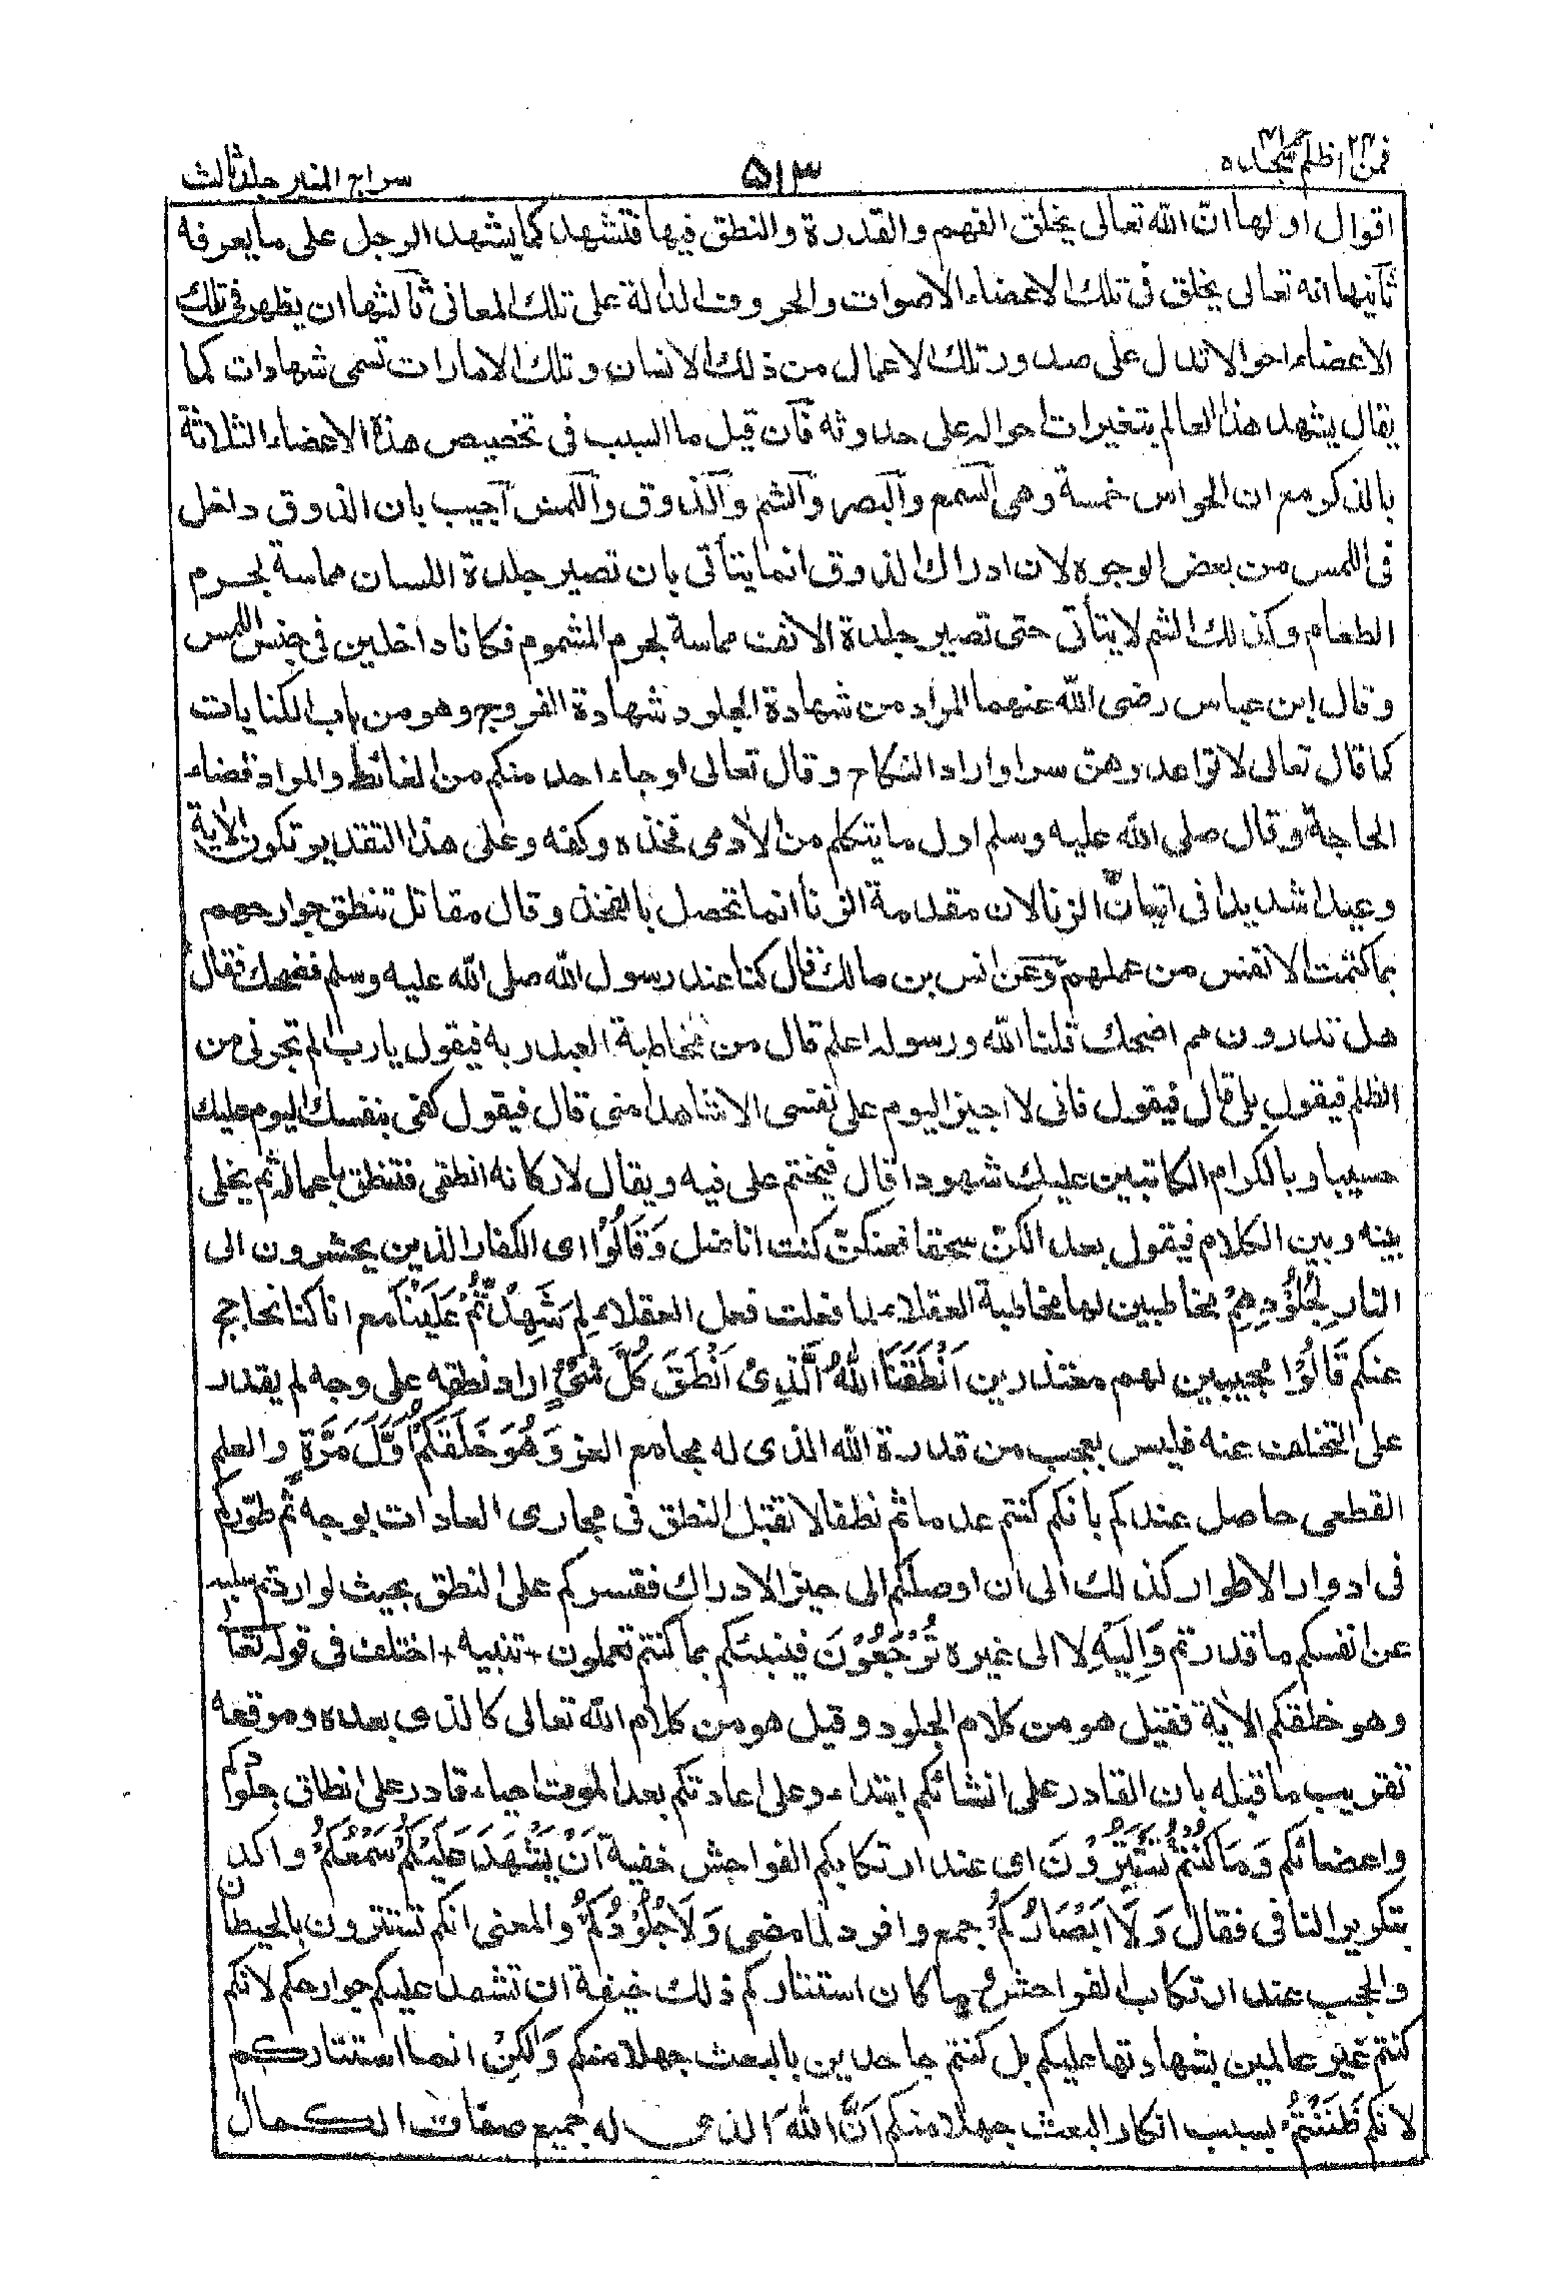 فمن اظلم ٢٤ حم السجدة ٤١
٥١٣
سراج المنير جلد ثالث
اقوال اولها ان الله تعالى يخلق الفهم والقدرة والنطق فيها فتشهد كما يشهد الرجل على ما يعرفه
ثانيها انه تعالى يخلق فى تلك الاعضاء الاصوات والحروف الدالة على تلك المعانى ثالثها ان يظهر فى تلك
الاعضاء احوالا تدل على صدور تلك الاعمال من ذلك الانسان وتلك الامارات تسمى شهادات كما
يقال يشهد هذا العالم بتغيرات احواله على حدوثه فان قيل ما السبب فى تخصيص هذه الاعضاء الثلاثة
بالذكر مع ان الحواس خمسة وهى السمع والبصر والشم والذوق واللمس اجيب بان الذوق داخل
فى اللمس من بعض الوجوه لان ادراك الذوق انما يتأتى بان تصير جلدة اللسان مماسة لجرم
الطعام وكذلك الشم لا يتأتى حتى تصير جلدة الانف مماسة لجرم المشموم فكانا داخلين فى جنس اللمس
وقال ابن عباس رضى الله عنهما المراد من شهادة الجلود شهادة الفروج وهو من باب الكنايات
كما قال تعالى لا تواعدوهن سرا واراد النكاح وقال تعالى او جاء احد منكم من الغائط والمراد قضاء
الحاجة وقال صلى الله عليه وسلم اول ما يتكلم من الآدمى فخذه وكفه وعلى هذا التقدير تكون الآية
وعيدا شديدا فى اتيان الزنا لان مقدمة الزنا انما تحصل بالفخذ وقال مقاتل تنطق جوارحهم
بما كتمت الانفس من عملهم وعن انس بن مالك قال كنا عند رسول الله صلى الله عليه وسلم فضحك فقال
هل تدرون مم اضحك قلنا الله ورسوله اعلم قال من مخاطبة العبد ربه فيقول يا رب الم تجرنى من
الظلم فيقول بلى قال فيقول فانى لا اجيز اليوم على نفسى الا شاهدا منى قال فيقول كفى بنفسك اليوم عليك
حسيبا وبالكرام الكاتبين عليك شهودا قال فيختم على فيه ويقال لاركانه انطقى فتنطق باعماله ثم يخلى
بينه وبين الكلام فيقول بعدا لكن سحقا فعنكن كنت اناضل وَقَالُوْا اى الكفار الذين يحشرون الى
النار لِجُلُوْدِهِمْ مخاطبين لها مخاطبة العقلاء لما فعلت فعل العقلاء لِمَ شَهِدْتُّمْ عَلَيْنَا مع انا كنا نحاجج
عنكم قَالُوْا مجيبين لهم معتذرين اَنْطَقَنَا اللهُ الَّذِىْ اَنْطَقَ كُلَّ شَىْءٍ اراد نطقه على وجه لم يقدر
على التخلف عنه فليس بعجب من قدرة الله الذى له مجامع العز وَهُوَ خَلَقَكُمْ اَوَّلَ مَرَّةٍ والعلم
القطعى حاصل عندكم بانكم كنتم عدما ثم نطفا لا تقبل النطق فى مجارى العادات بوجه ثم طوركم
فى ادوار الاطوار كذلك الى ان اوصلكم الى حيز الادراك فقسركم على النطق بحيث لو اردتم سلبه
عن انفسكم ما قدرتم وَاِلَيْهِ لا الى غيره تُرْجَعُوْنَ فينبئكم بما كنتم تعملون + تنبيه + اختلف فى قوله تعا
وهو خلقكم الآية فقيل هو من كلام الجلود وقيل هو من كلام الله تعالى كالذى بعده وموقعه
تقريب ما قبله بان القادر على انشائكم ابتداء وعلى اعادتكم بعد الموت احياء قادر على انطاق جلودكم
واعضائكم وَمَا كُنْتُمْ تَسْتَتِرُوْنَ اى عند ارتكابكم الفواحش خفية اَنْ يَّشْهَدَ عَلَيْكُمْ سَمْعُكُمْ واكد
بتكرير النافى فقال وَلَا اَبْصَارُكُمْ جمع وافرد لما مضى وَلَا جُلُوْدُكُمْ والمعنى انكم تستترون بالحيطان
والحجب عند ارتكاب الفواحش وما كان استتاركم ذلك خيفة ان تشهد عليكم جوارحكم لانكم
كنتم غير عالمين بشهادتها عليكم بل كنتم جاحدين بالبعث جهلا منكم وَلٰكِنْ انما استتاركم
لانكم ظَنَنْتُمْ بسبب انكار البعث جهلا منكم اَنَّ اللهَ الذى له جميع صفات الكمال